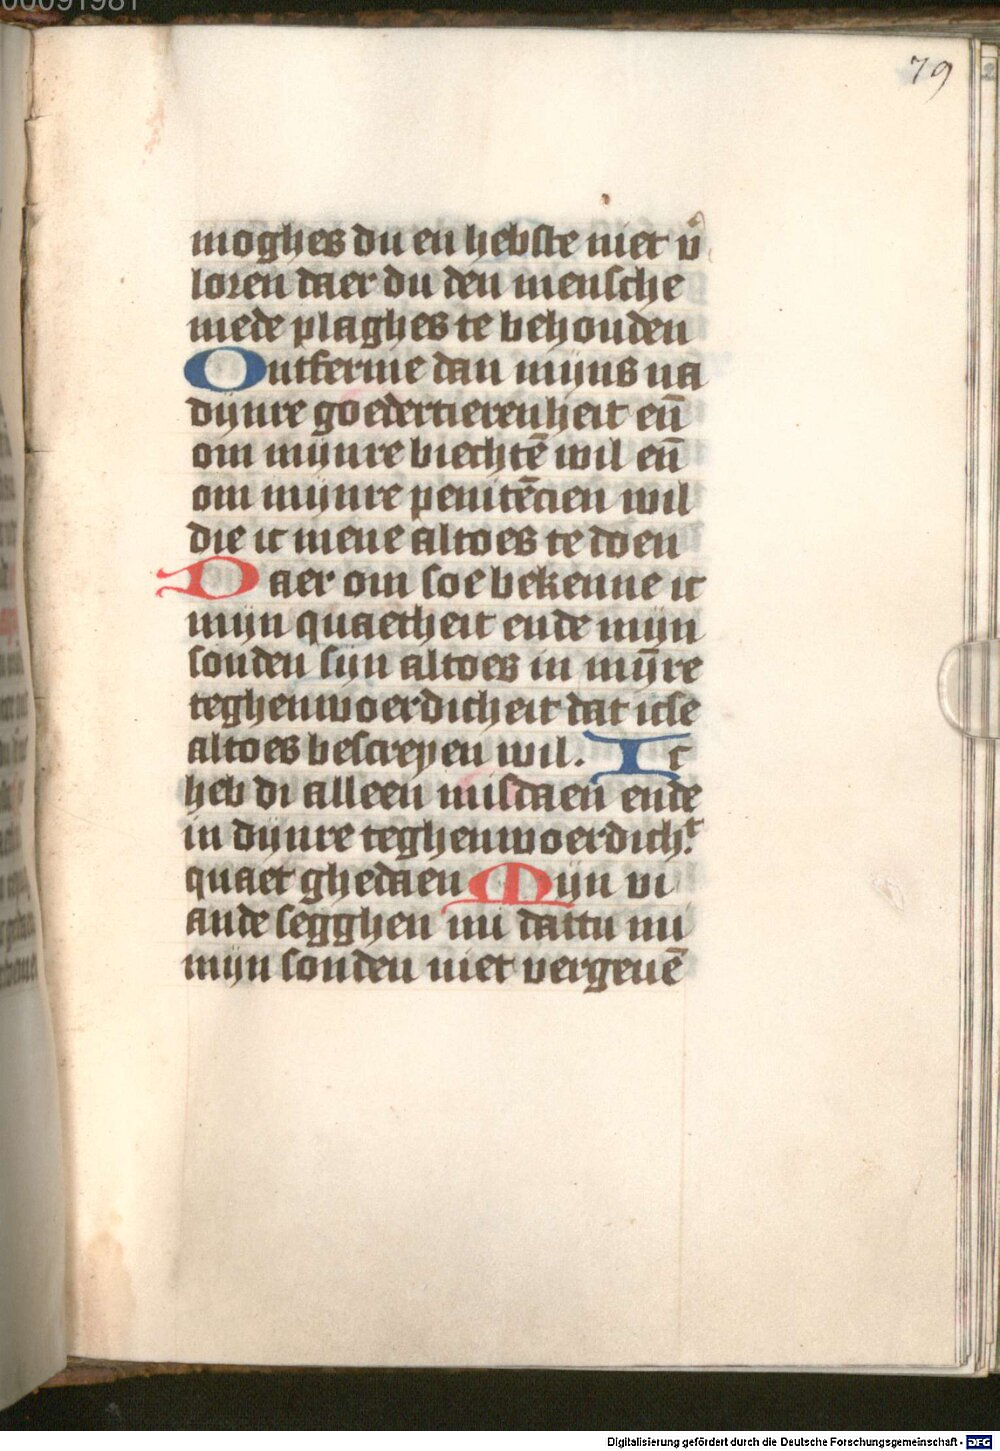 00091981
79
moghes du en hebste niet v̄
loren daer du den mensche
mede plaghes te behouden
Ontferme dan mijns na
dijnre goedertierenheit en̄
om mijnre biechtē wil en̄
om mijnre penitēcien wil
die ic mene altoes te doen
Daer om soe bekenne ic
mijn quaetheit ende mijn
sonden sijn altoes in mȳre
teghenwoerdicheit dat icse
altoes bescreyen wil. Ic
heb di alleen misdaen ende
in dijnre teghenwoerdichᵗ
quaet ghedaen Mijn vi
ande segghen mi dattu mi
mijn sonden niet vergeuē
Digitalisierung gefördert durch die Deutsche Forschungsgemeinschaft - DFG